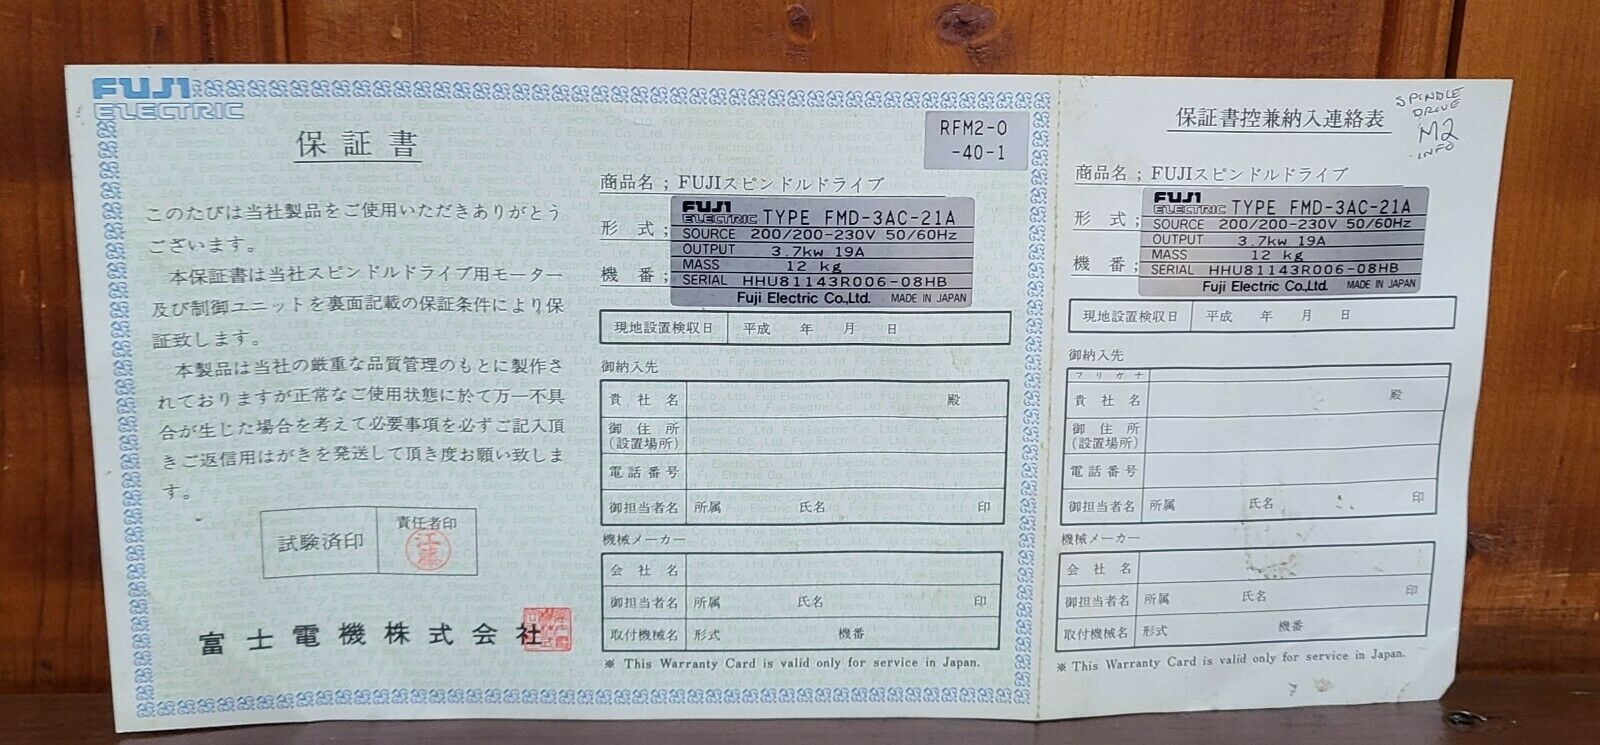 FUJI
ELECTRIC
保証書
このたびは当社製品をご使用いただきありがとう
ございます。
本保証書は当社スピンドルドライブ用モーター
及び制御ユニットを裏面記載の保証条件により保
証致します。
本製品は当社の厳重な品質管理のもとに製作さ
れておりますが正常なご使用状態に於て万一不具
合が生じた場合を考えて必要事項を必ずご記入頂
きご返信用はがきを発送して頂き度お願い致しま
す。
試験済印 責任者印
富士電機株式会社
RFM2-0
-40-1
商品名；FUJIスピンドルドライブ
形式；
機番；
FUJI
ELECTRIC TYPE FMD-3AC-21A
SOURCE 200/200-230V 50/60Hz
OUTPUT 3.7kw 19A
MASS 12 kg
SERIAL HHU81143R006-08HB
Fuji Electric Co.,Ltd. MADE IN JAPAN
現地設置検収日 平成 年 月 日
御納入先
貴社名 殿
御住所
(設置場所)
電話番号
御担当者名 所属 氏名 印
機械メーカー
会社名
御担当者名 所属 氏名 印
取付機械名 形式 機番
※ This Warranty Card is valid only for service in Japan.
保証書控兼納入連絡表
SPINDLE
DRIVE
M2
INFO
商品名；FUJIスピンドルドライブ
形式；
機番；
FUJI
ELECTRIC TYPE FMD-3AC-21A
SOURCE 200/200-230V 50/60Hz
OUTPUT 3.7kw 19A
MASS 12 kg
SERIAL HHU81143R006-08HB
Fuji Electric Co.,Ltd. MADE IN JAPAN
現地設置検収日 平成 年 月 日
御納入先
フリガナ
貴社名 殿
御住所
(設置場所)
電話番号
御担当者名 所属 氏名 印
機械メーカー
会社名
御担当者名 所属 氏名 印
取付機械名 形式 機番
※ This Warranty Card is valid only for service in Japan.